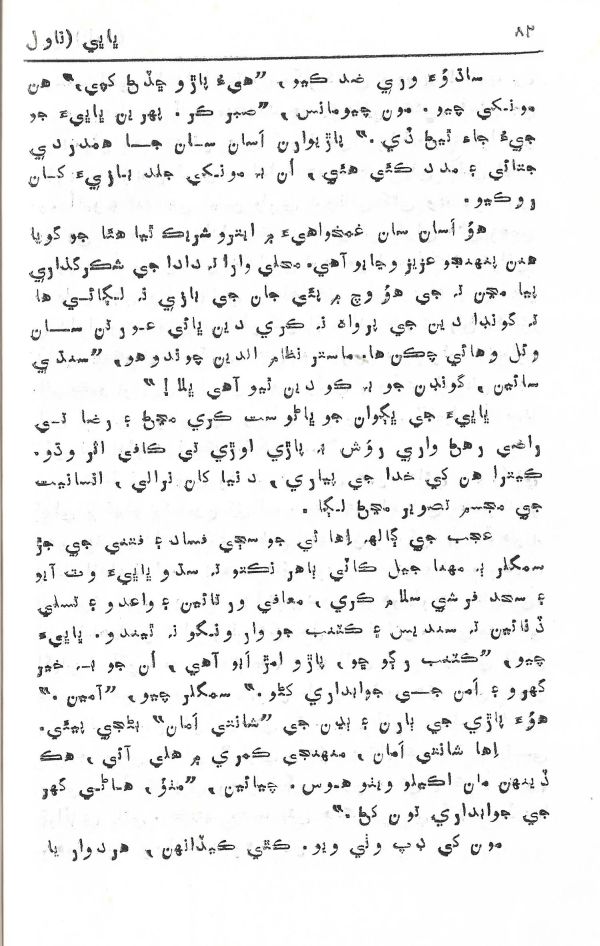 ٨٢
ڀاڀي (ناول
ساڌوءَ وري ضد ڪيو، ”هيءُ پاڙو ڇڏڻ کپي،“ هن
مونکي چيو. مون چيومانس، ”صبر ڪر. پهرين ڀاڀيءَ جو
جيءُ جاءِ ٿيڻ ڏي.“ پاڙيوارن اَسان سان جا همدردي
جتائي ۽ مدد ڪئي هئي، اُن به مونکي جلد بازيءَ کان
روڪيو.
هو اَسان سان غمخواهيءَ ۾ ايترو شريڪ ٿيا هئا جو گويا
هنن پنهنجو عزيز وڃايو آهي. محلي وارا ته دادا جي شڪرگذاري
پيا مڃن ته جي هو وچ ۾ پئي جان جي بازي نه لڳائي ها
ته گونڊا دين جي پرواهه نه ڪري دين ڀائي عورتن سان
وئل وهائي چڪن ها. ماستر نظام الدين چوندو هو، ”سنڌي
سائين، گونڊن جو به ڪو دين ٿيو آهي ڀلا!“
ڀاڀيءَ جي ڀڳوان جو ڀاڻو ست ڪري مڃڻ ۽ رضا تي
راضي رهڻ واري روَش به پاڙي اوڙي تي ڪافي اثر وڌو.
ڪيترا هن کي خدا جي پياري، دنيا کان نرالي، انسانيت
جي مجسم تصوير مڃڻ لڳا.
عجب جي ڳالهه اِها ٿي جو سڄي فساد ۽ فتني جي جڙ
سمگلر به مهنا جيل ڪاٽي ٻاهر نڪتو ته سڌو ڀاڀيءَ وٽ آيو
۽ سجد فرشي سلام ڪري، معافي ورتائين ۽ واعدو ۽ تسلي
ڏنائين ته سنديس ۽ ڪٽنب جو وار ونگو نه ٿيندو. ڀاڀيءَ
چيو، ”ڪٽنب رڳو ڇو، پاڙو امڙ اَبو آهي، اُن جو به خير
گهرو ۽ اَمن جي جوابداري کڻو.“ سمگلر چيو، ”آمين.“
هوءَ پاڙي جي ٻارن ۽ ٻڍن جي ”شانتي اَمان“ بڻجي پيئي.
اِها شانتي اَمان، منهنجي ڪمري ۾ هلي آئي، هڪ
ڏينهن مان اڪيلو ويٺو هوس. چيائين، ”منوُ، هاڻي گهر
جي جوابداري تون کڻ.“
مون کي ڊپ وٺي ويو. ڪٿي ڪيڏانهن، هردوار يا